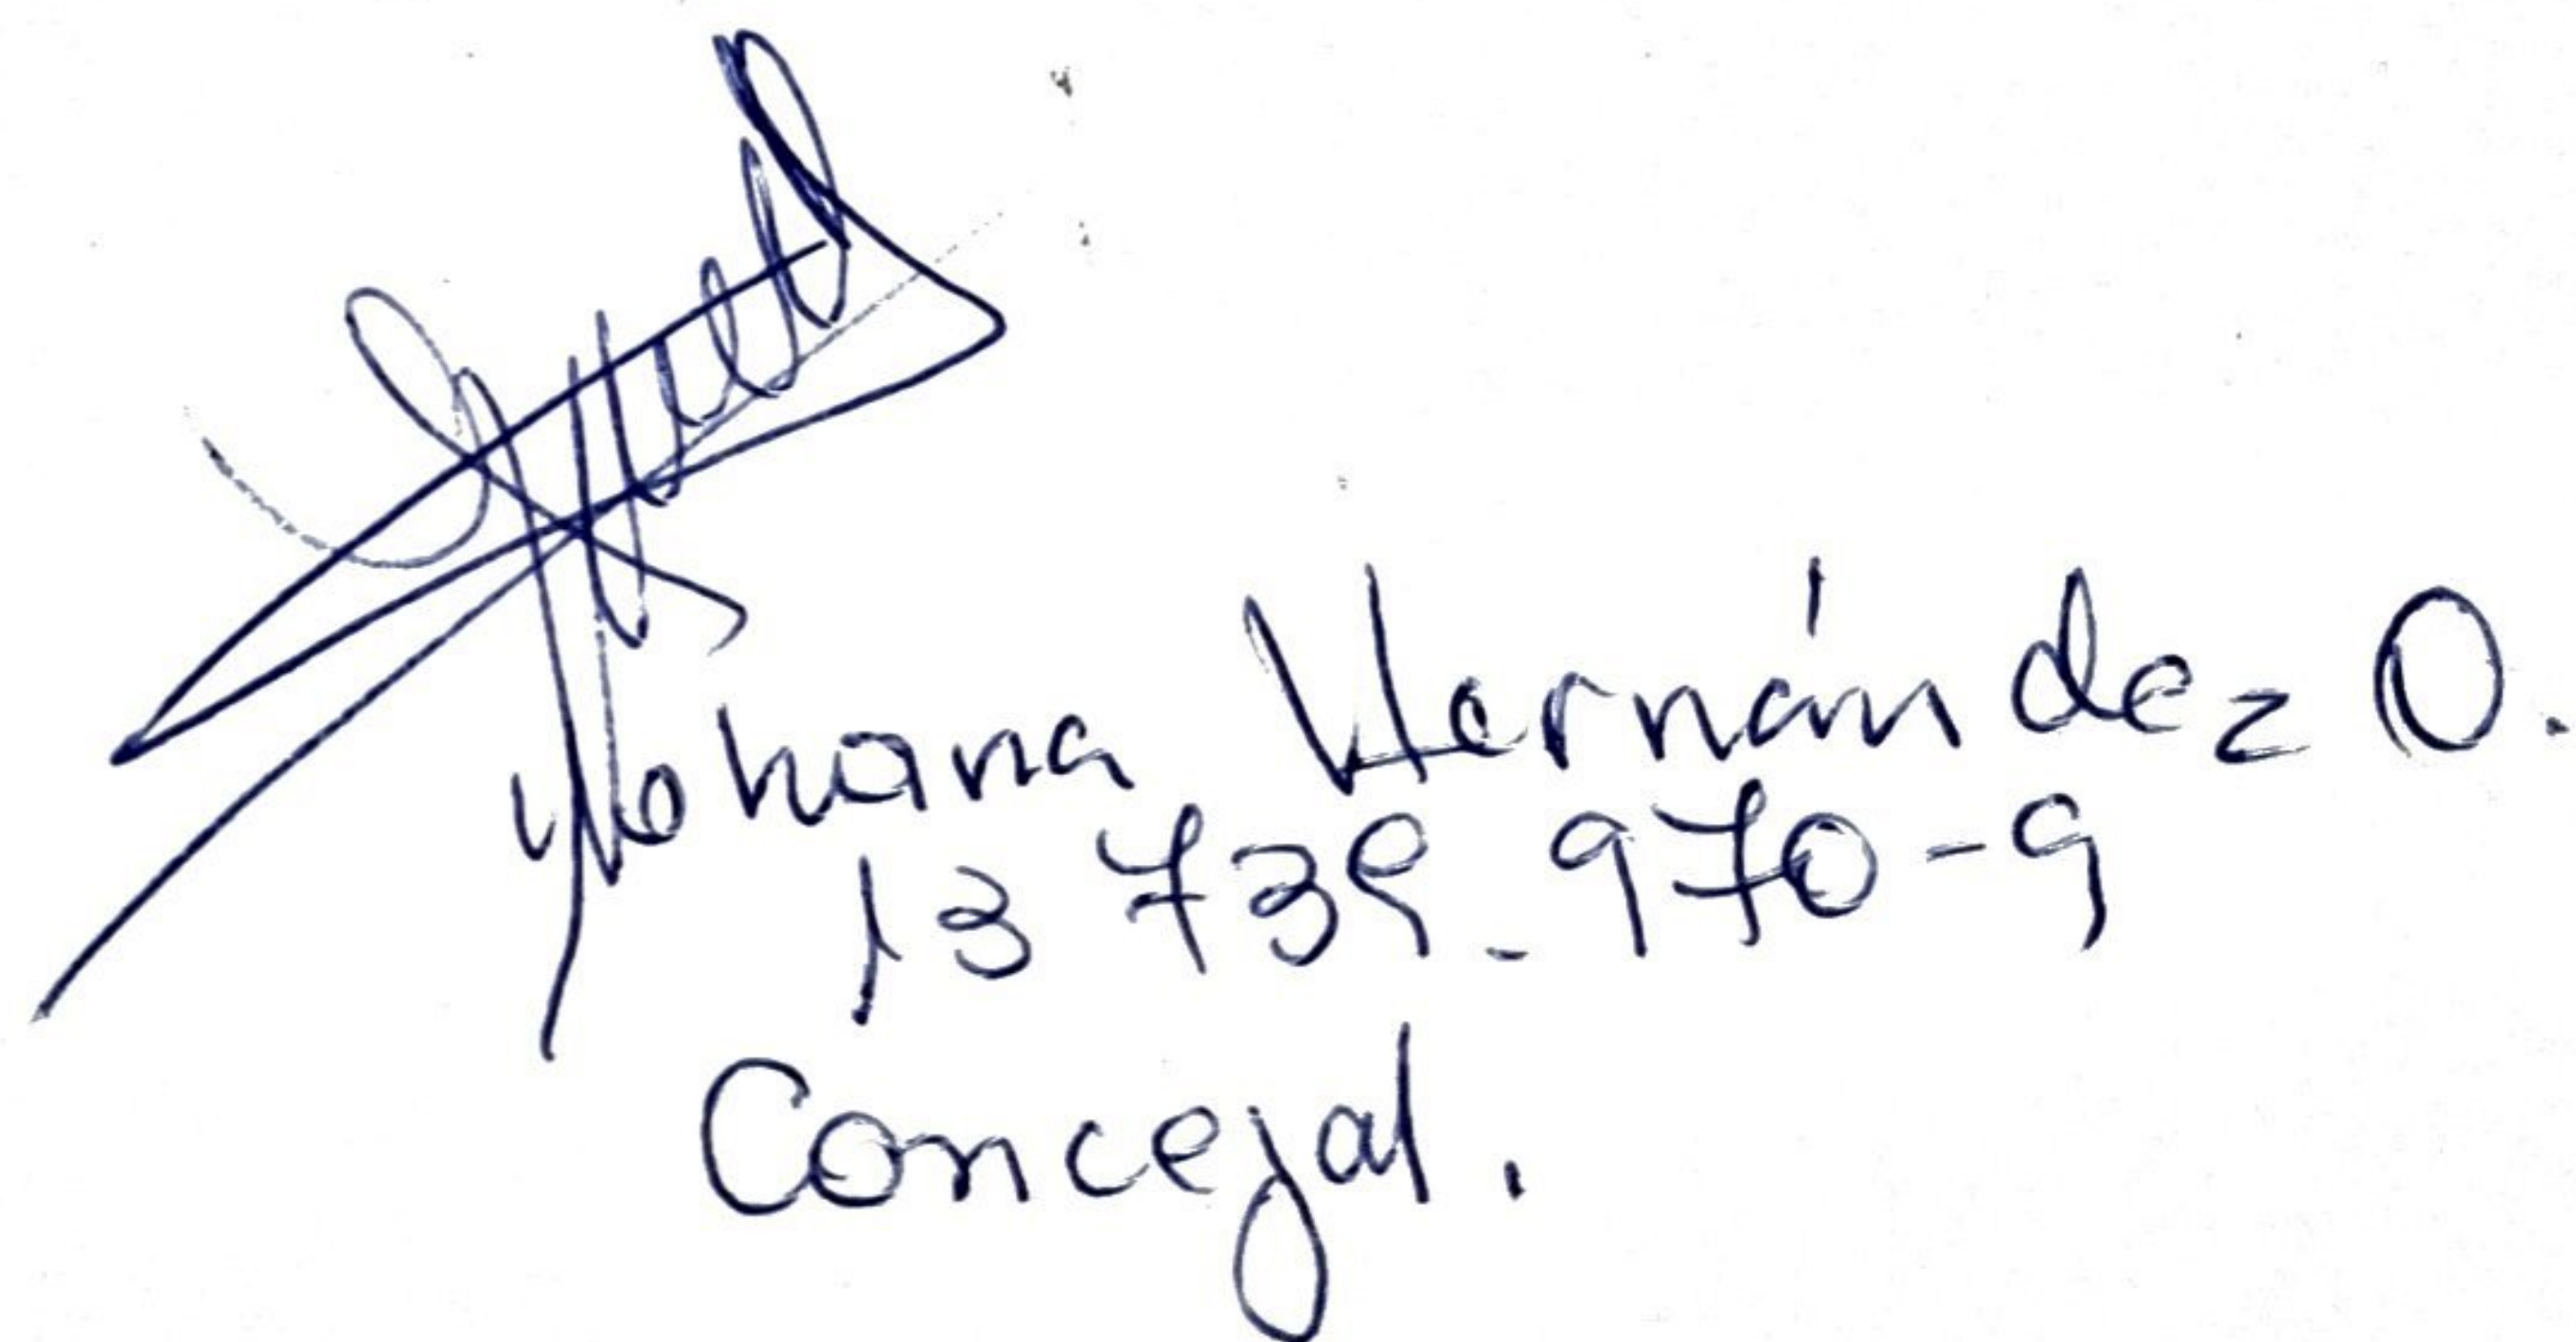 Yohana Hernández O.
13 739.970-9
Concejal.